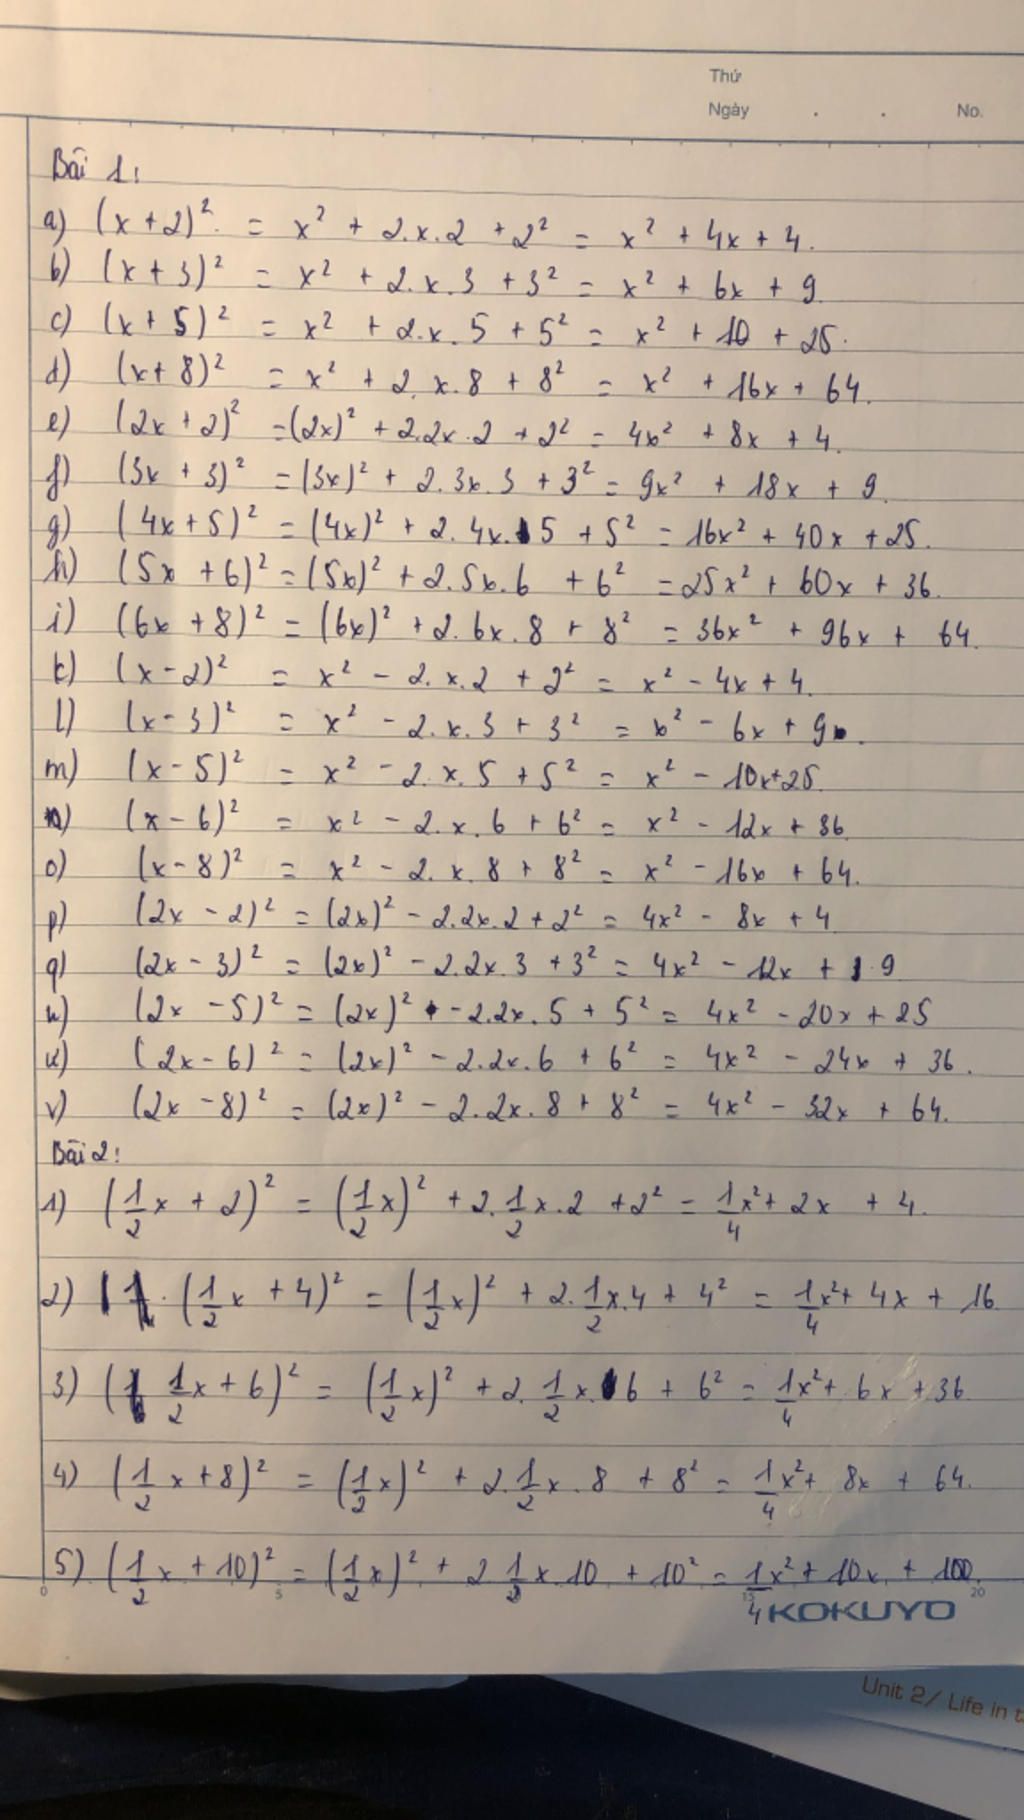 Thứ
Ngày . . No.
Bài 1:
a) (x + 2)² = x² + 2.x.2 + 2² = x² + 4x + 4.
b) (x + 3)² = x² + 2.x.3 + 3² = x² + 6x + 9.
c) (x + 5)² = x² + 2.x.5 + 5² = x² + 10 + 25.
d) (x + 8)² = x² + 2.x.8 + 8² = x² + 16x + 64.
e) (2x + 2)² = (2x)² + 2.2x.2 + 2² = 4x² + 8x + 4.
f) (3x + 3)² = (3x)² + 2.3x.3 + 3² = 9x² + 18x + 9.
g) (4x + 5)² = (4x)² + 2.4x.5 + 5² = 16x² + 40x + 25.
h) (5x + 6)² = (5x)² + 2.5x.6 + 6² = 25x² + 60x + 36.
i) (6x + 8)² = (6x)² + 2.6x.8 + 8² = 36x² + 96x + 64.
k) (x - 2)² = x² - 2.x.2 + 2² = x² - 4x + 4.
l) (x - 3)² = x² - 2.x.3 + 3² = x² - 6x + 9.
m) (x - 5)² = x² - 2.x.5 + 5² = x² - 10x + 25.
n) (x - 6)² = x² - 2.x.6 + 6² = x² - 12x + 36.
o) (x - 8)² = x² - 2.x.8 + 8² = x² - 16x + 64.
p) (2x - 2)² = (2x)² - 2.2x.2 + 2² = 4x² - 8x + 4
q) (2x - 3)² = (2x)² - 2.2x.3 + 3² = 4x² - 12x + 9
u) (2x - 5)² = (2x)² - 2.2x.5 + 5² = 4x² - 20x + 25
u) (2x - 6)² = (2x)² - 2.2x.6 + 6² = 4x² - 24x + 36.
v) (2x - 8)² = (2x)² - 2.2x.8 + 8² = 4x² - 32x + 64.
Bài 2:
1) (1/2 x + 2)² = (1/2 x)² + 2.1/2 x.2 + 2² = 1/4 x² + 2x + 4.
2) (1/2 x + 4)² = (1/2 x)² + 2.1/2 x.4 + 4² = 1/4 x² + 4x + 16
3) (1/2 x + 6)² = (1/2 x)² + 2.1/2 x.6 + 6² = 1/4 x² + 6x + 36
4) (1/2 x + 8)² = (1/2 x)² + 2.1/2 x.8 + 8² = 1/4 x² + 8x + 64.
5) (1/2 x + 10)² = (1/2 x)² + 2 1/2 x.10 + 10² = 1/4 x² + 10x + 100.
0 5 15 20
KOKUYO
Unit 2/ Life in